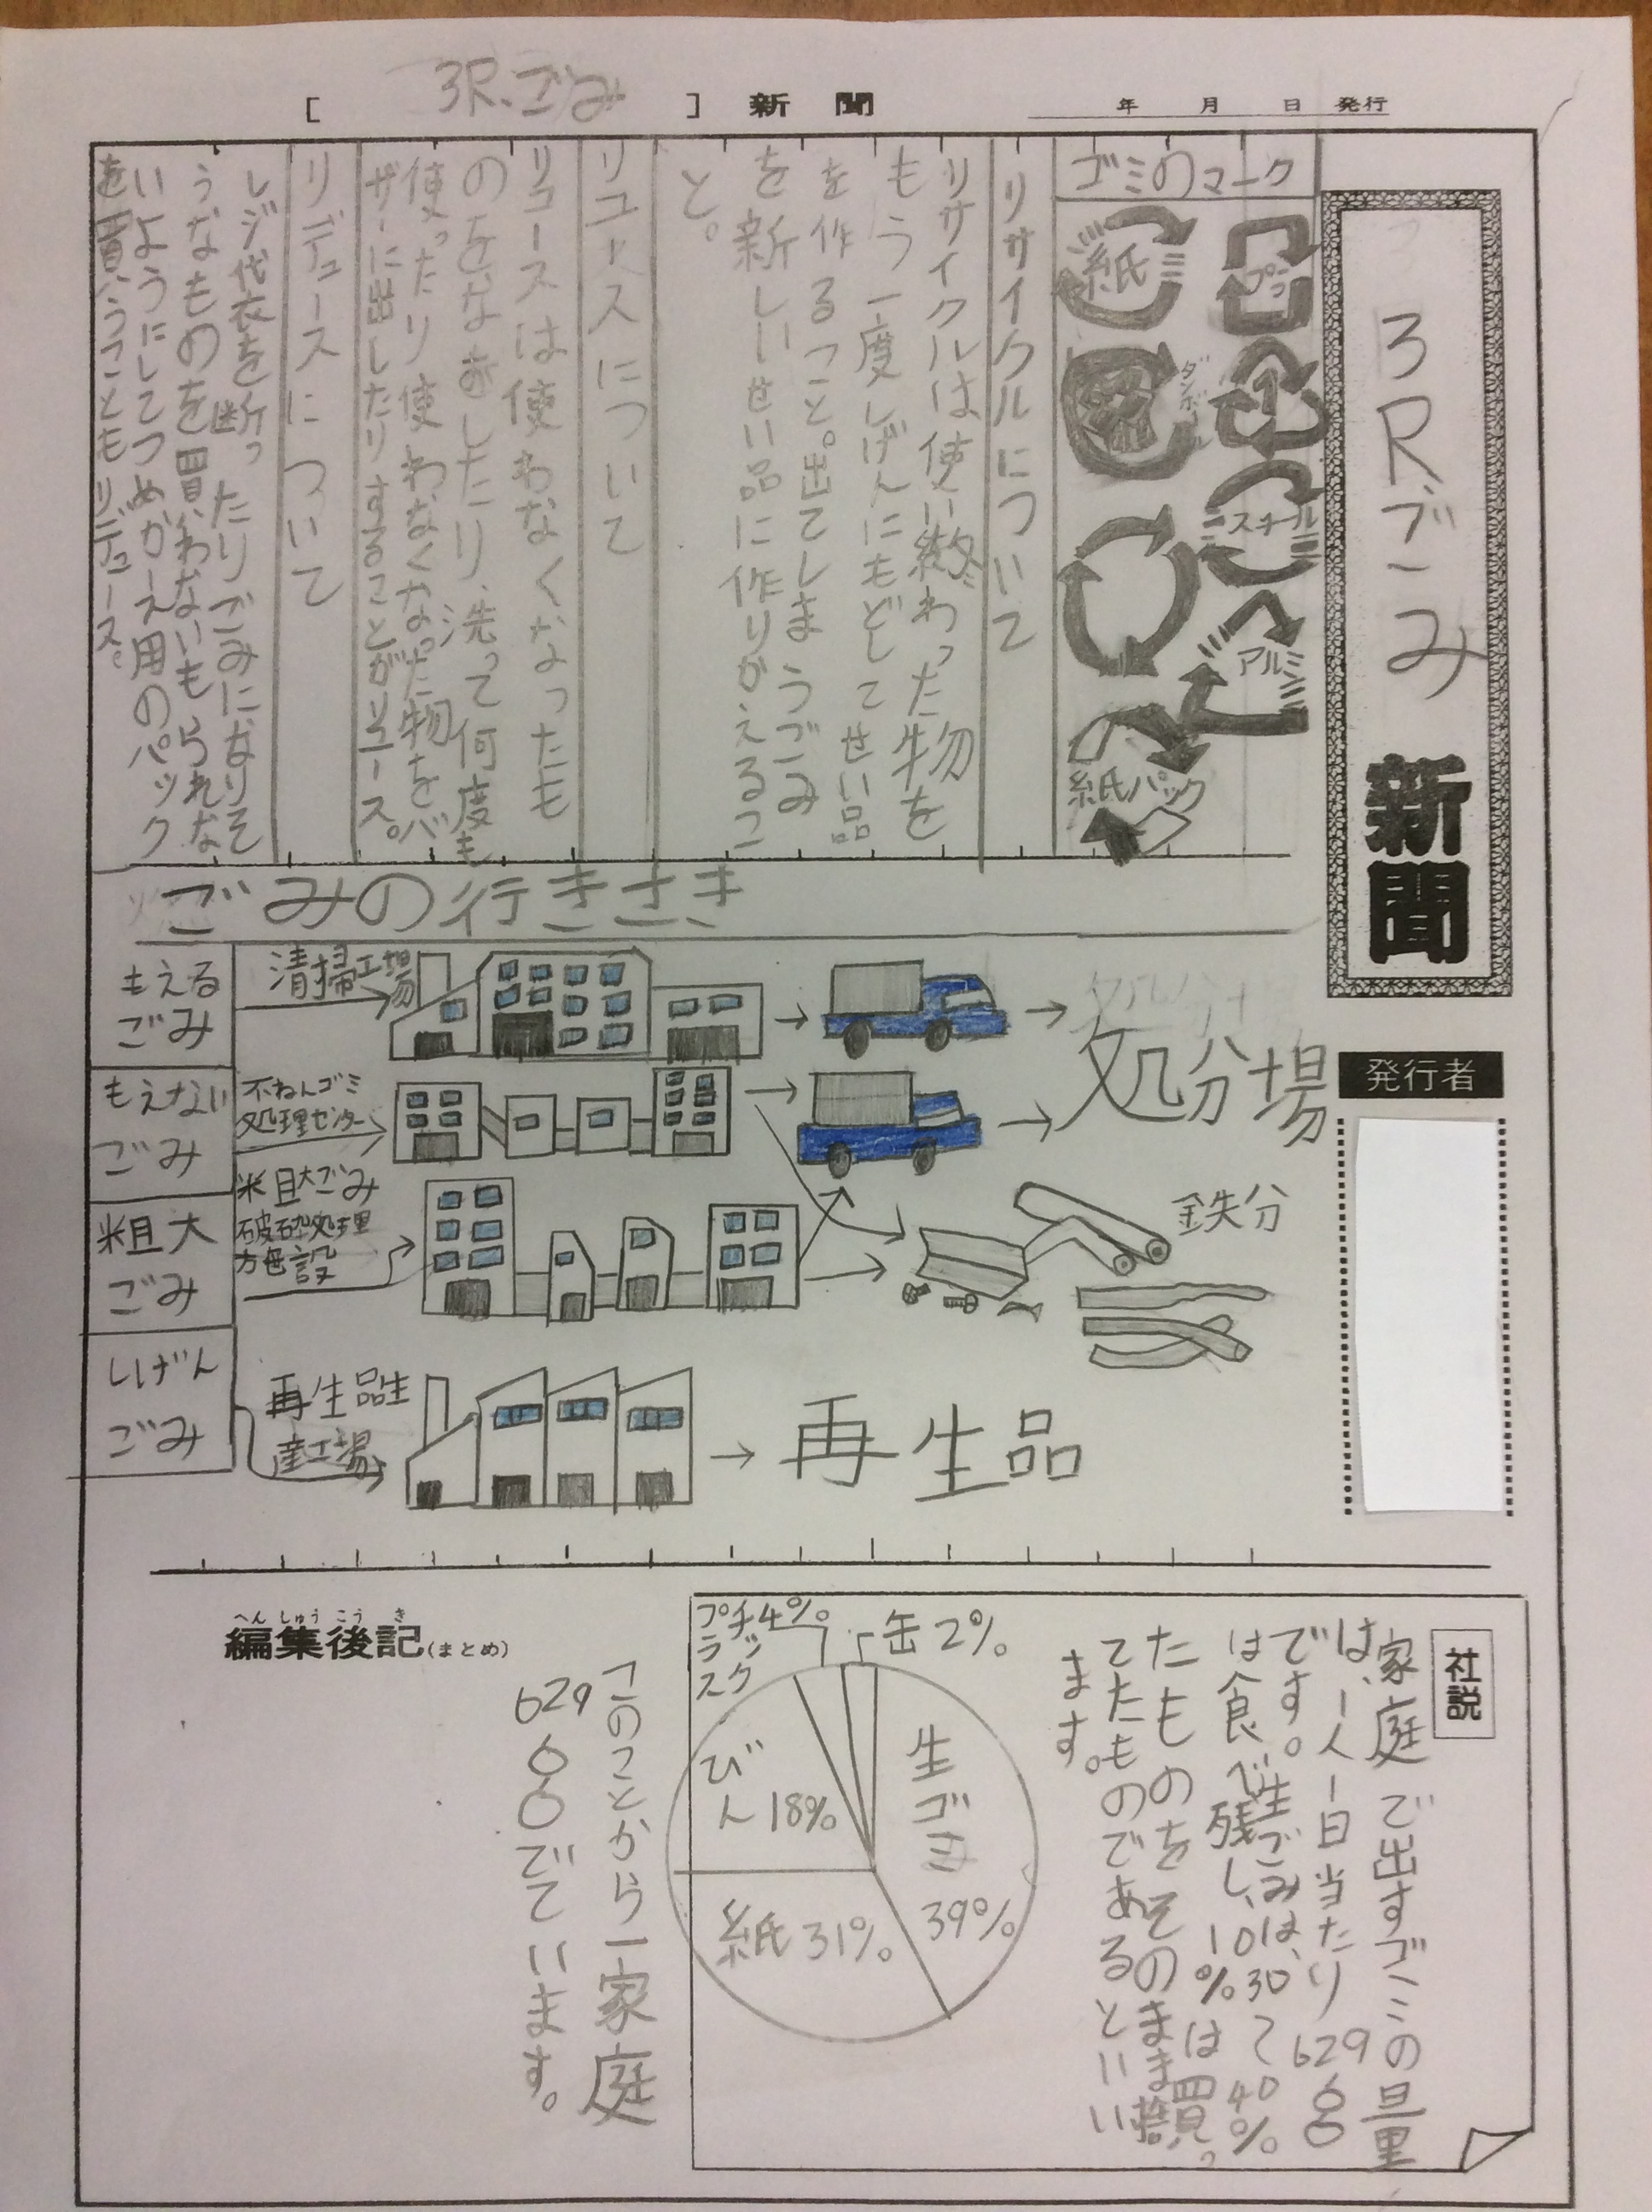 [ 3R.ごみ ] 新聞
年 月 日 発行
3Rごみ
新聞
発行者
ゴミのマーク
プラ
1
スチール
アルミ
紙
ダンボール
紙パック
リサイクルについて
リサイクルは使い終わった物を
もう一度しげんにもどしてせい品
を作ること。出てしまうごみ
を新しいせい品に作りかえるこ
と。
リユースについて
リユースは使わなくなったも
のをなおしたり、洗って何度も
使ったり使わなくなった物をバ
ザーに出したりすることがリユース。
リデュースについて
レジ代衣を断ったりごみになりそ
うなものを買わないもらわな
いようにしてつめかえ用のパック
を買うこともリデュース。
ごみの行きさき
もえる
ごみ
清掃工場
処分場
もえない
ごみ
不ねんゴミ
処理センター
粗大
ごみ
粗大ごみ
破砕処理
施設
鉄分
しげん
ごみ
再生品生
産工場
再生品
社説
家庭で出すゴミの量
は、一人一日当たり629g
です。生ごみは、30〜40%
は食べ残し、10%は買っ
たものをそのまま捨
てたものであるといい
ます。
缶2%
プラスチック4%
びん18%
紙31%
生ゴミ39%
編集後記(まとめ)
へんしゅうこうき
このことから一家庭
629gでています。